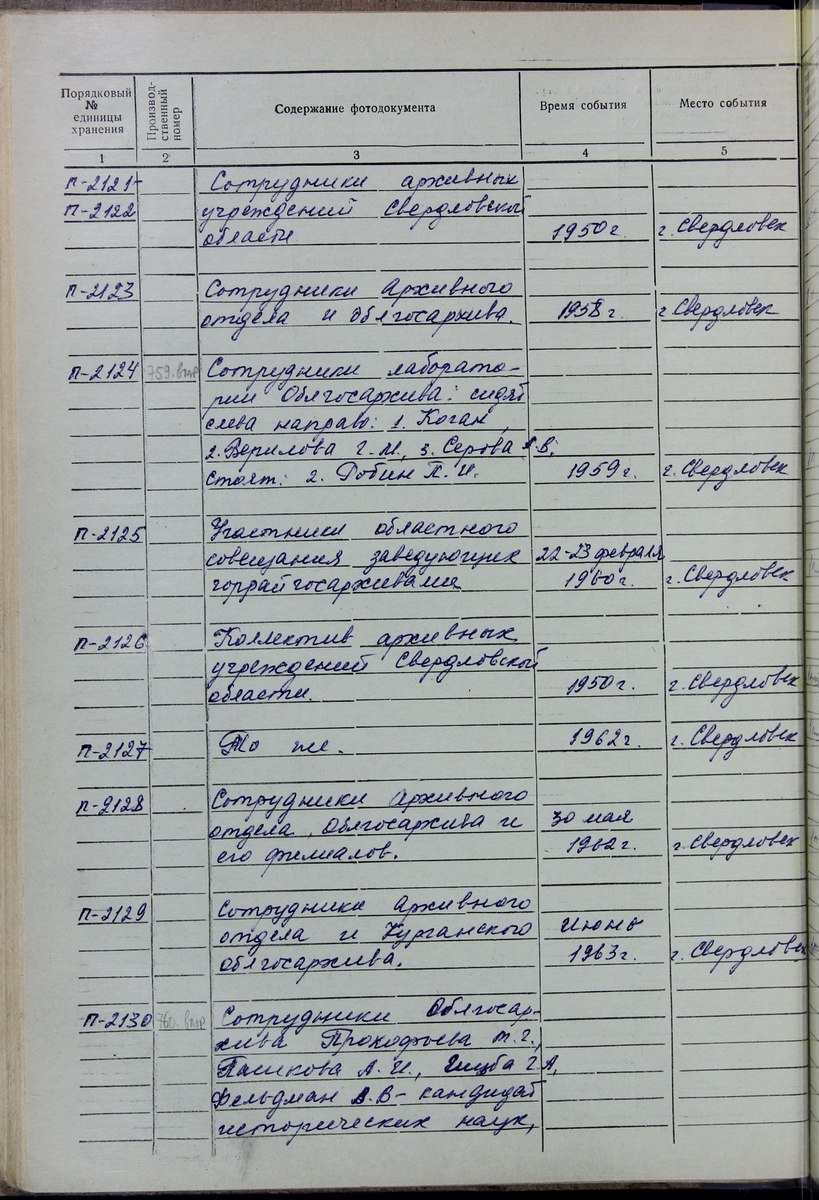 Порядковый № единицы хранения
Производ-ственный номер
Содержание фотодокумента
Время события
Место события
1 2 3 4 5
П-2121- Сотрудники архивных
П-2122 учреждений Свердловской
области 1950 г. г. Свердловск
П-2123 Сотрудники Архивного
отдела и Облгосархива. 1958 г. г. Свердловск
П-2124 759. Сотрудники лаборато-
рии Облгосархива: сидят
слева направо: 1. Коган,
2. Верилова Г.М., 3. Серова В.;
стоят: 2. Гобин П.И. 1959 г. г. Свердловск
П-2125 Участники областного
совещания заведующих 22-23 февраля
горрайгосархивами 1960 г. г. Свердловск
П-2126 Коллектив архивных
учреждений Свердловской
области. 1950 г. г. Свердловск
П-2127 То же. 1962 г. г. Свердловск
П-2128 Сотрудники Архивного
отдела, Облгосархива и 30 мая
его филиалов. 1962 г. г. Свердловск
П-2129 Сотрудники Архивного
отдела и Курганского июнь
облгосархива. 1963 г. г. Свердловск
П-2130 760. Сотрудники Облгосар-
хива Прокофьева Т.Г.,
Пашкова А.И., Г.А,
Фельдман В.В - кандидат
исторических наук,